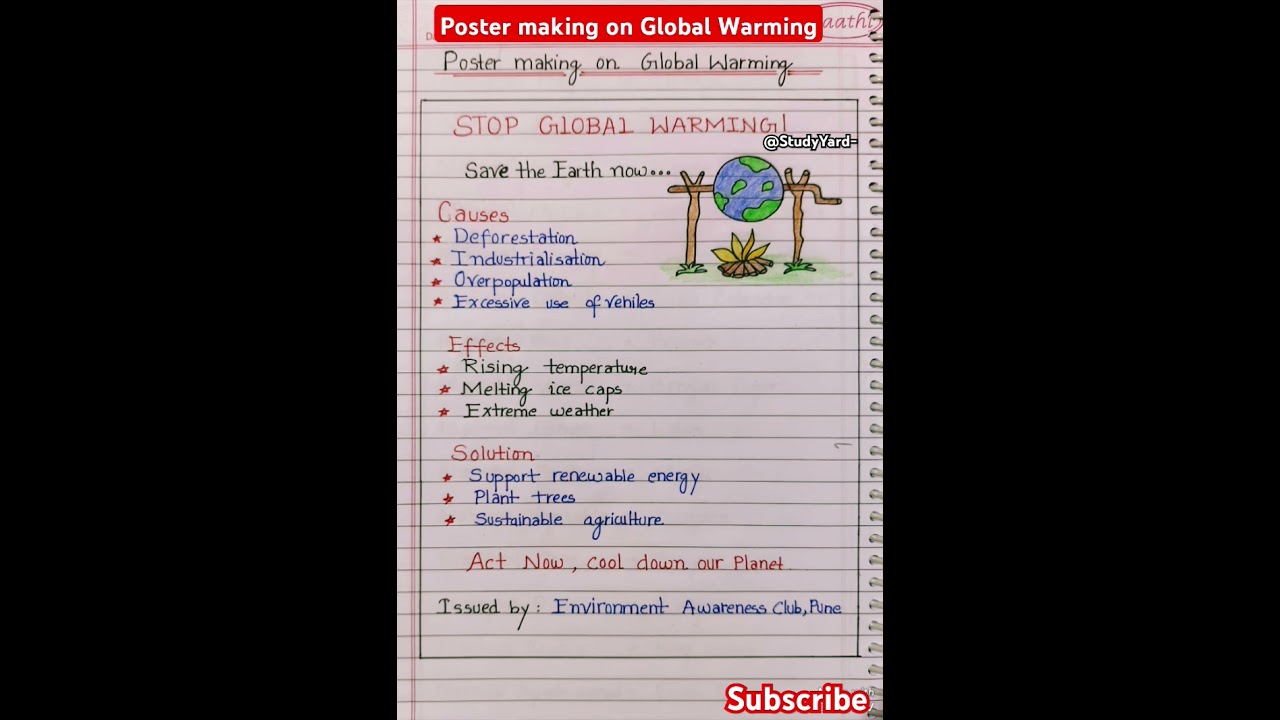 Poster making on Global Warming
aathi
Poster making on Global Warming
STOP GLOBAL WARMING!
@StudyYard-
Save the Earth now...
Causes
★ Deforestation
★ Industrialisation
★ Overpopulation
★ Excessive use of vehiles
Effects
★ Rising temperature
★ Melting ice caps
★ Extreme weather
Solution
★ Support renewable energy
★ Plant trees
★ Sustainable agriculture
Act Now, cool down our Planet
Issued by: Environment Awareness Club, Pune
Subscribe